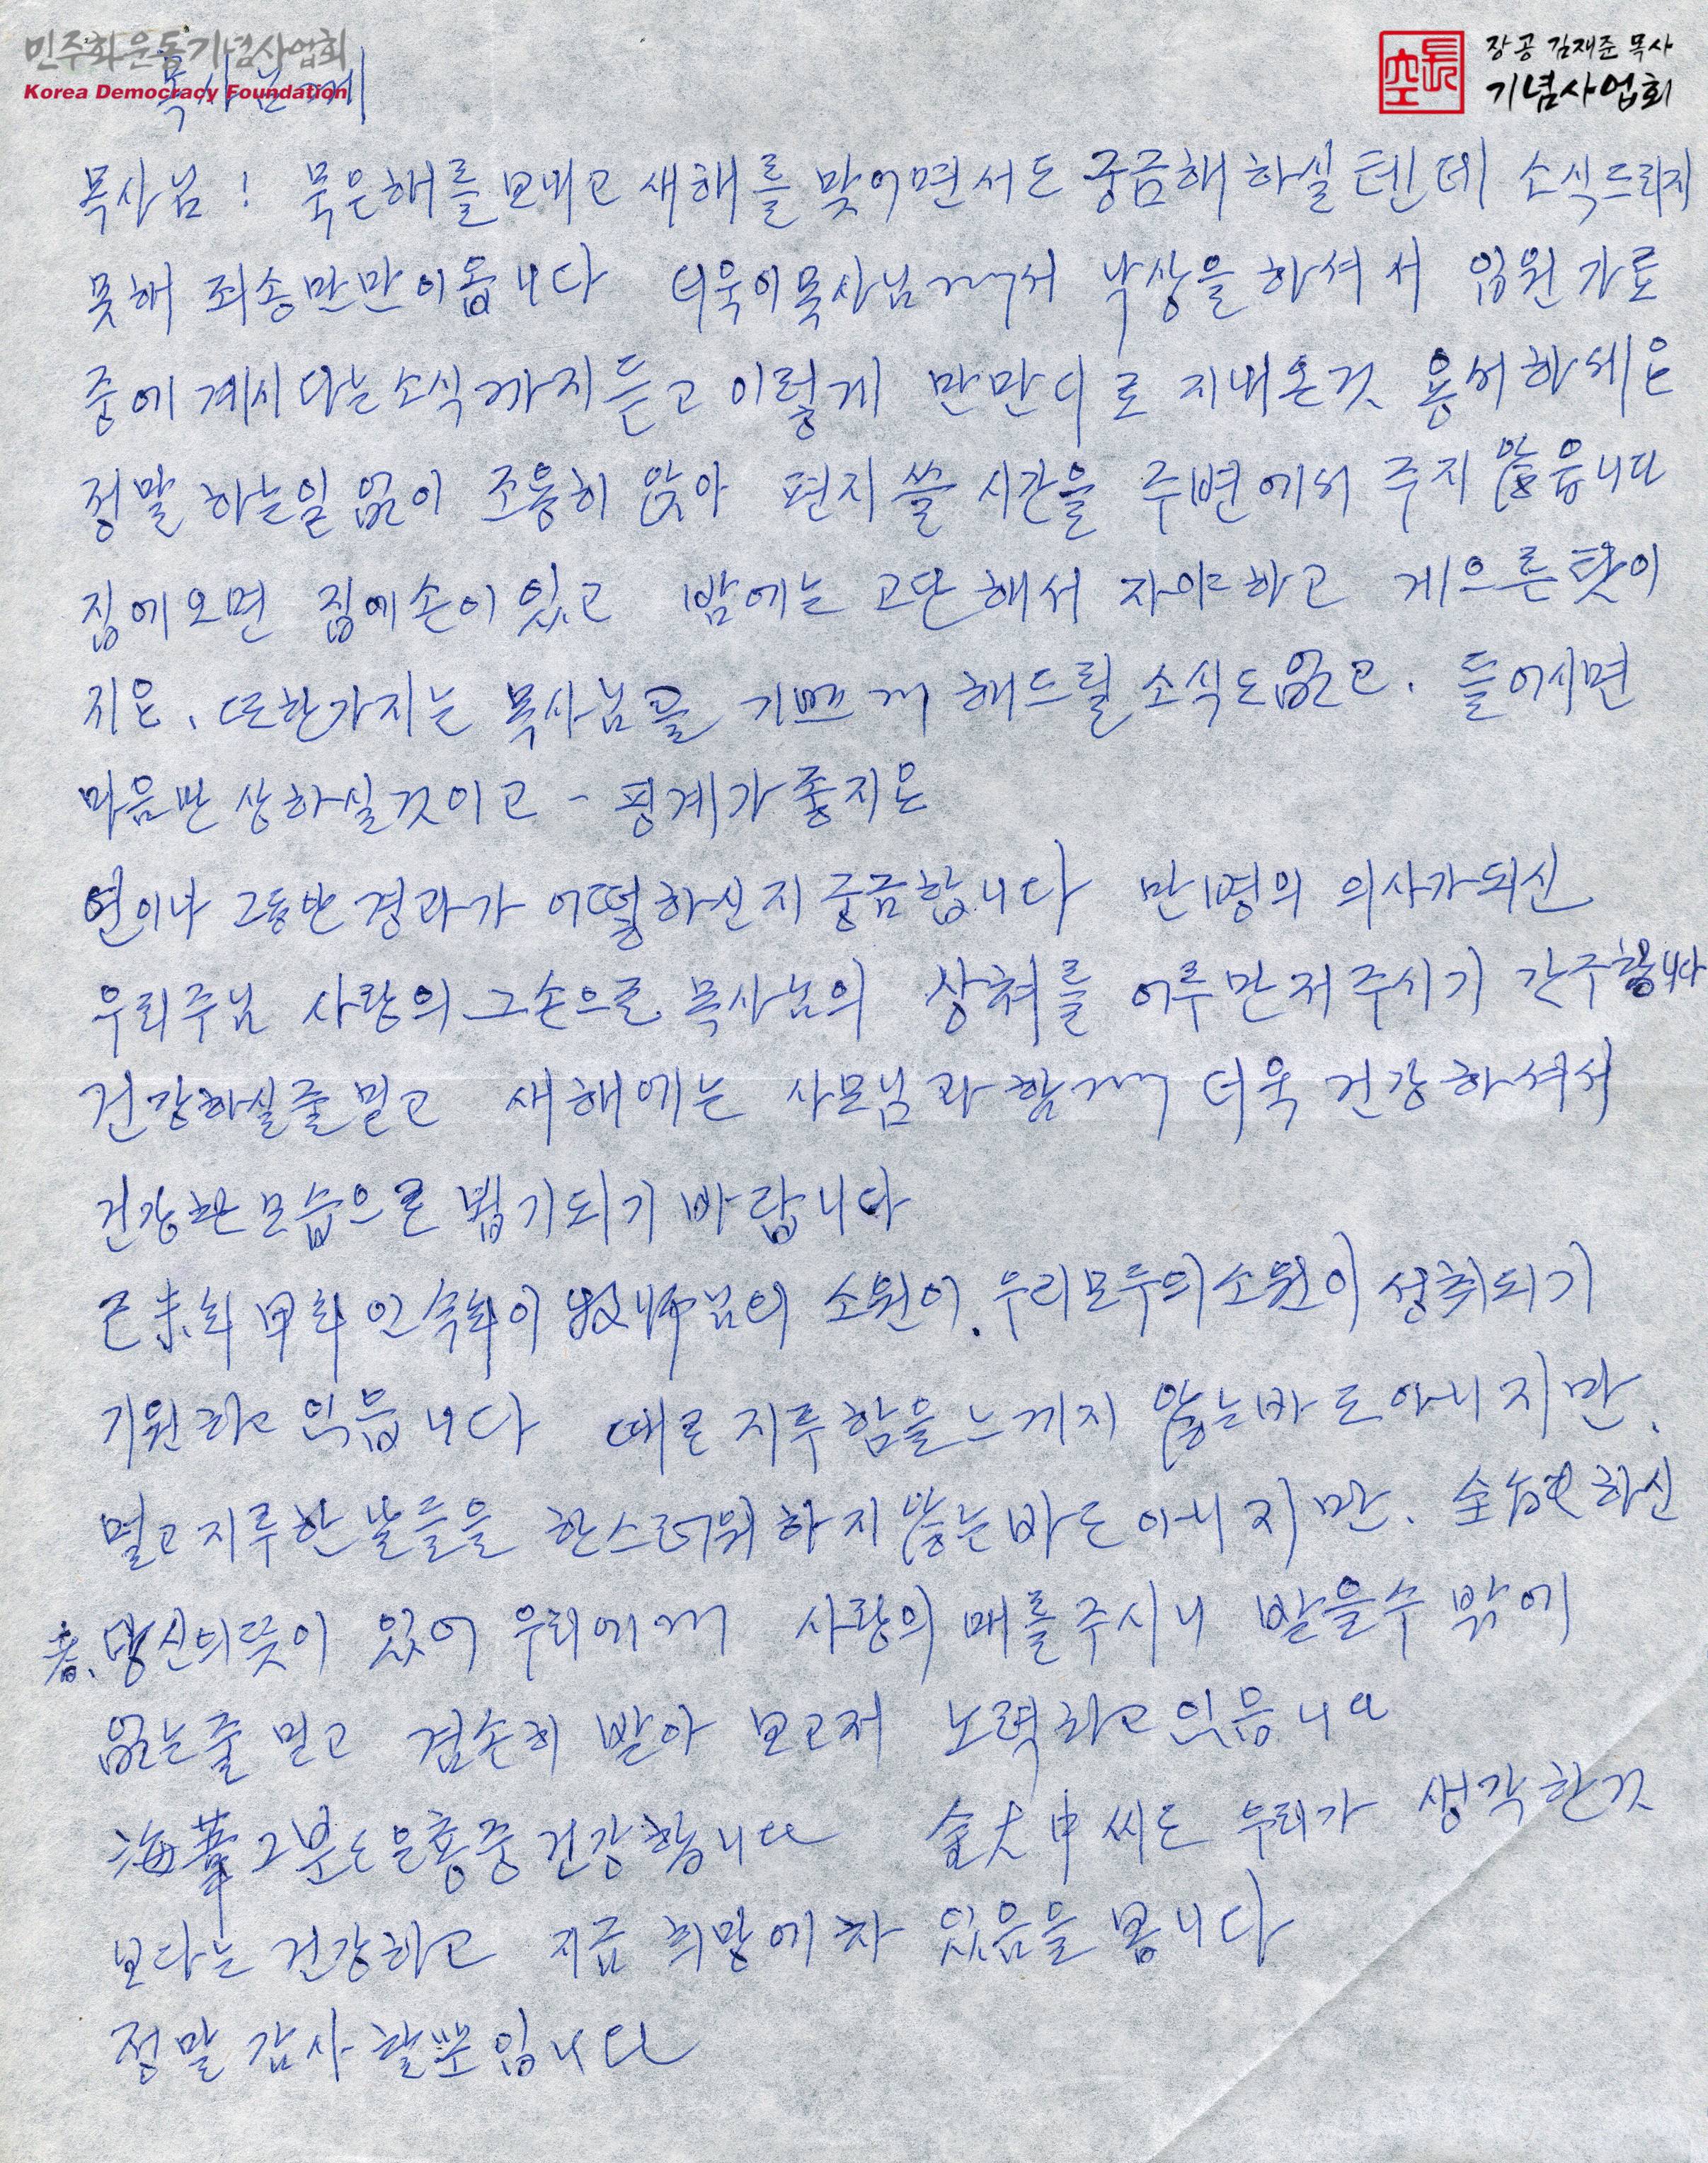 민주화운동기념사업회
Korea Democracy Foundation
장공 김재준 목사
기념사업회
목사님께
목사님! 묵은해를 보내고 새해를 맞이면서도 궁금해 하실텐데 소식드리지
못해 죄송만만이옵니다 더욱이목사님께서 낙상을하셔서 입원가료
중에계시다는소식까지듣고이렇게 만만디로 지내온것 용서하세요
정말 하는일없이 조용히 앉아 편지쓸 시간을 주변에서 주지않읍니다
집에오면 집에손이있고 밤에는 고단해서 자야하고 게으른탓이
지요. 또한가지는 목사님을 기쁘게 해드릴소식도없고. 들어시면
마음만 상하실것이고 - 핑계가좋지요
연이나 그동안경과가 어떻하신지궁금합니다 만명의 의사가되신
우리주님 사랑의그손으로 목사님의 상처를 어루만저주시기 간구합니다
건강하실줄믿고 새해에는 사모님과함께 더욱건강하셔서
건강한모습으로 뵙기되기 바랍니다
己未年 甲年인 今年이 牧師님의 소원이. 우리모두의소원이성취되기
기원하고 있읍니다 때로 지루함을느끼지 않는바도아니지만.
멀고지루한날들을 한스러워하지않는바도아니지만. 全治하신
당신의뜻이 있어 우리에게 사랑의매를주시니 받을수밖에
없는줄믿고 겸손히받아 보고저 노력하고있읍니다
海葦그분도은혜중건강합니다 金大中씨도 우리가 생각한것
보다는건강하고 지금희망에차 있음을봅니다
정말감사할뿐입니다